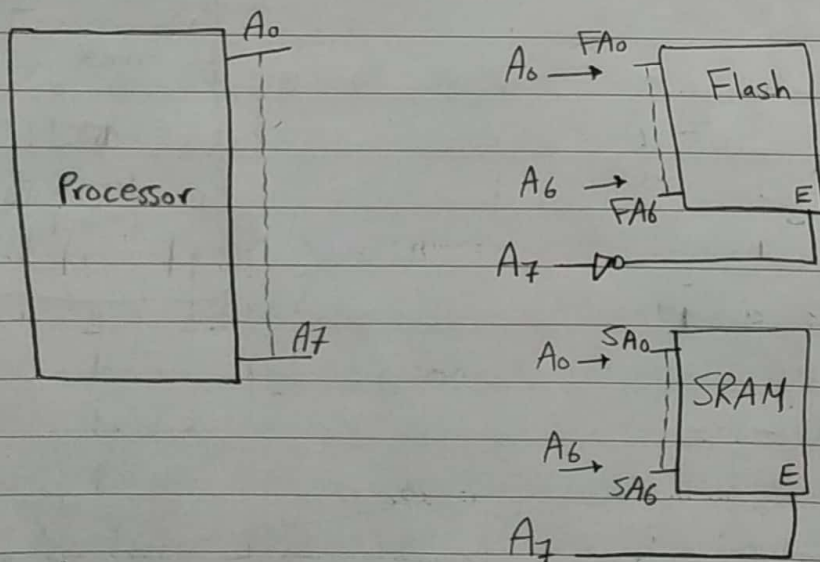 A0
Processor
A7
A0 FA0
Flash
A6
FA6
E
A7
A0 SA0
SRAM
A6
SA6
E
A7